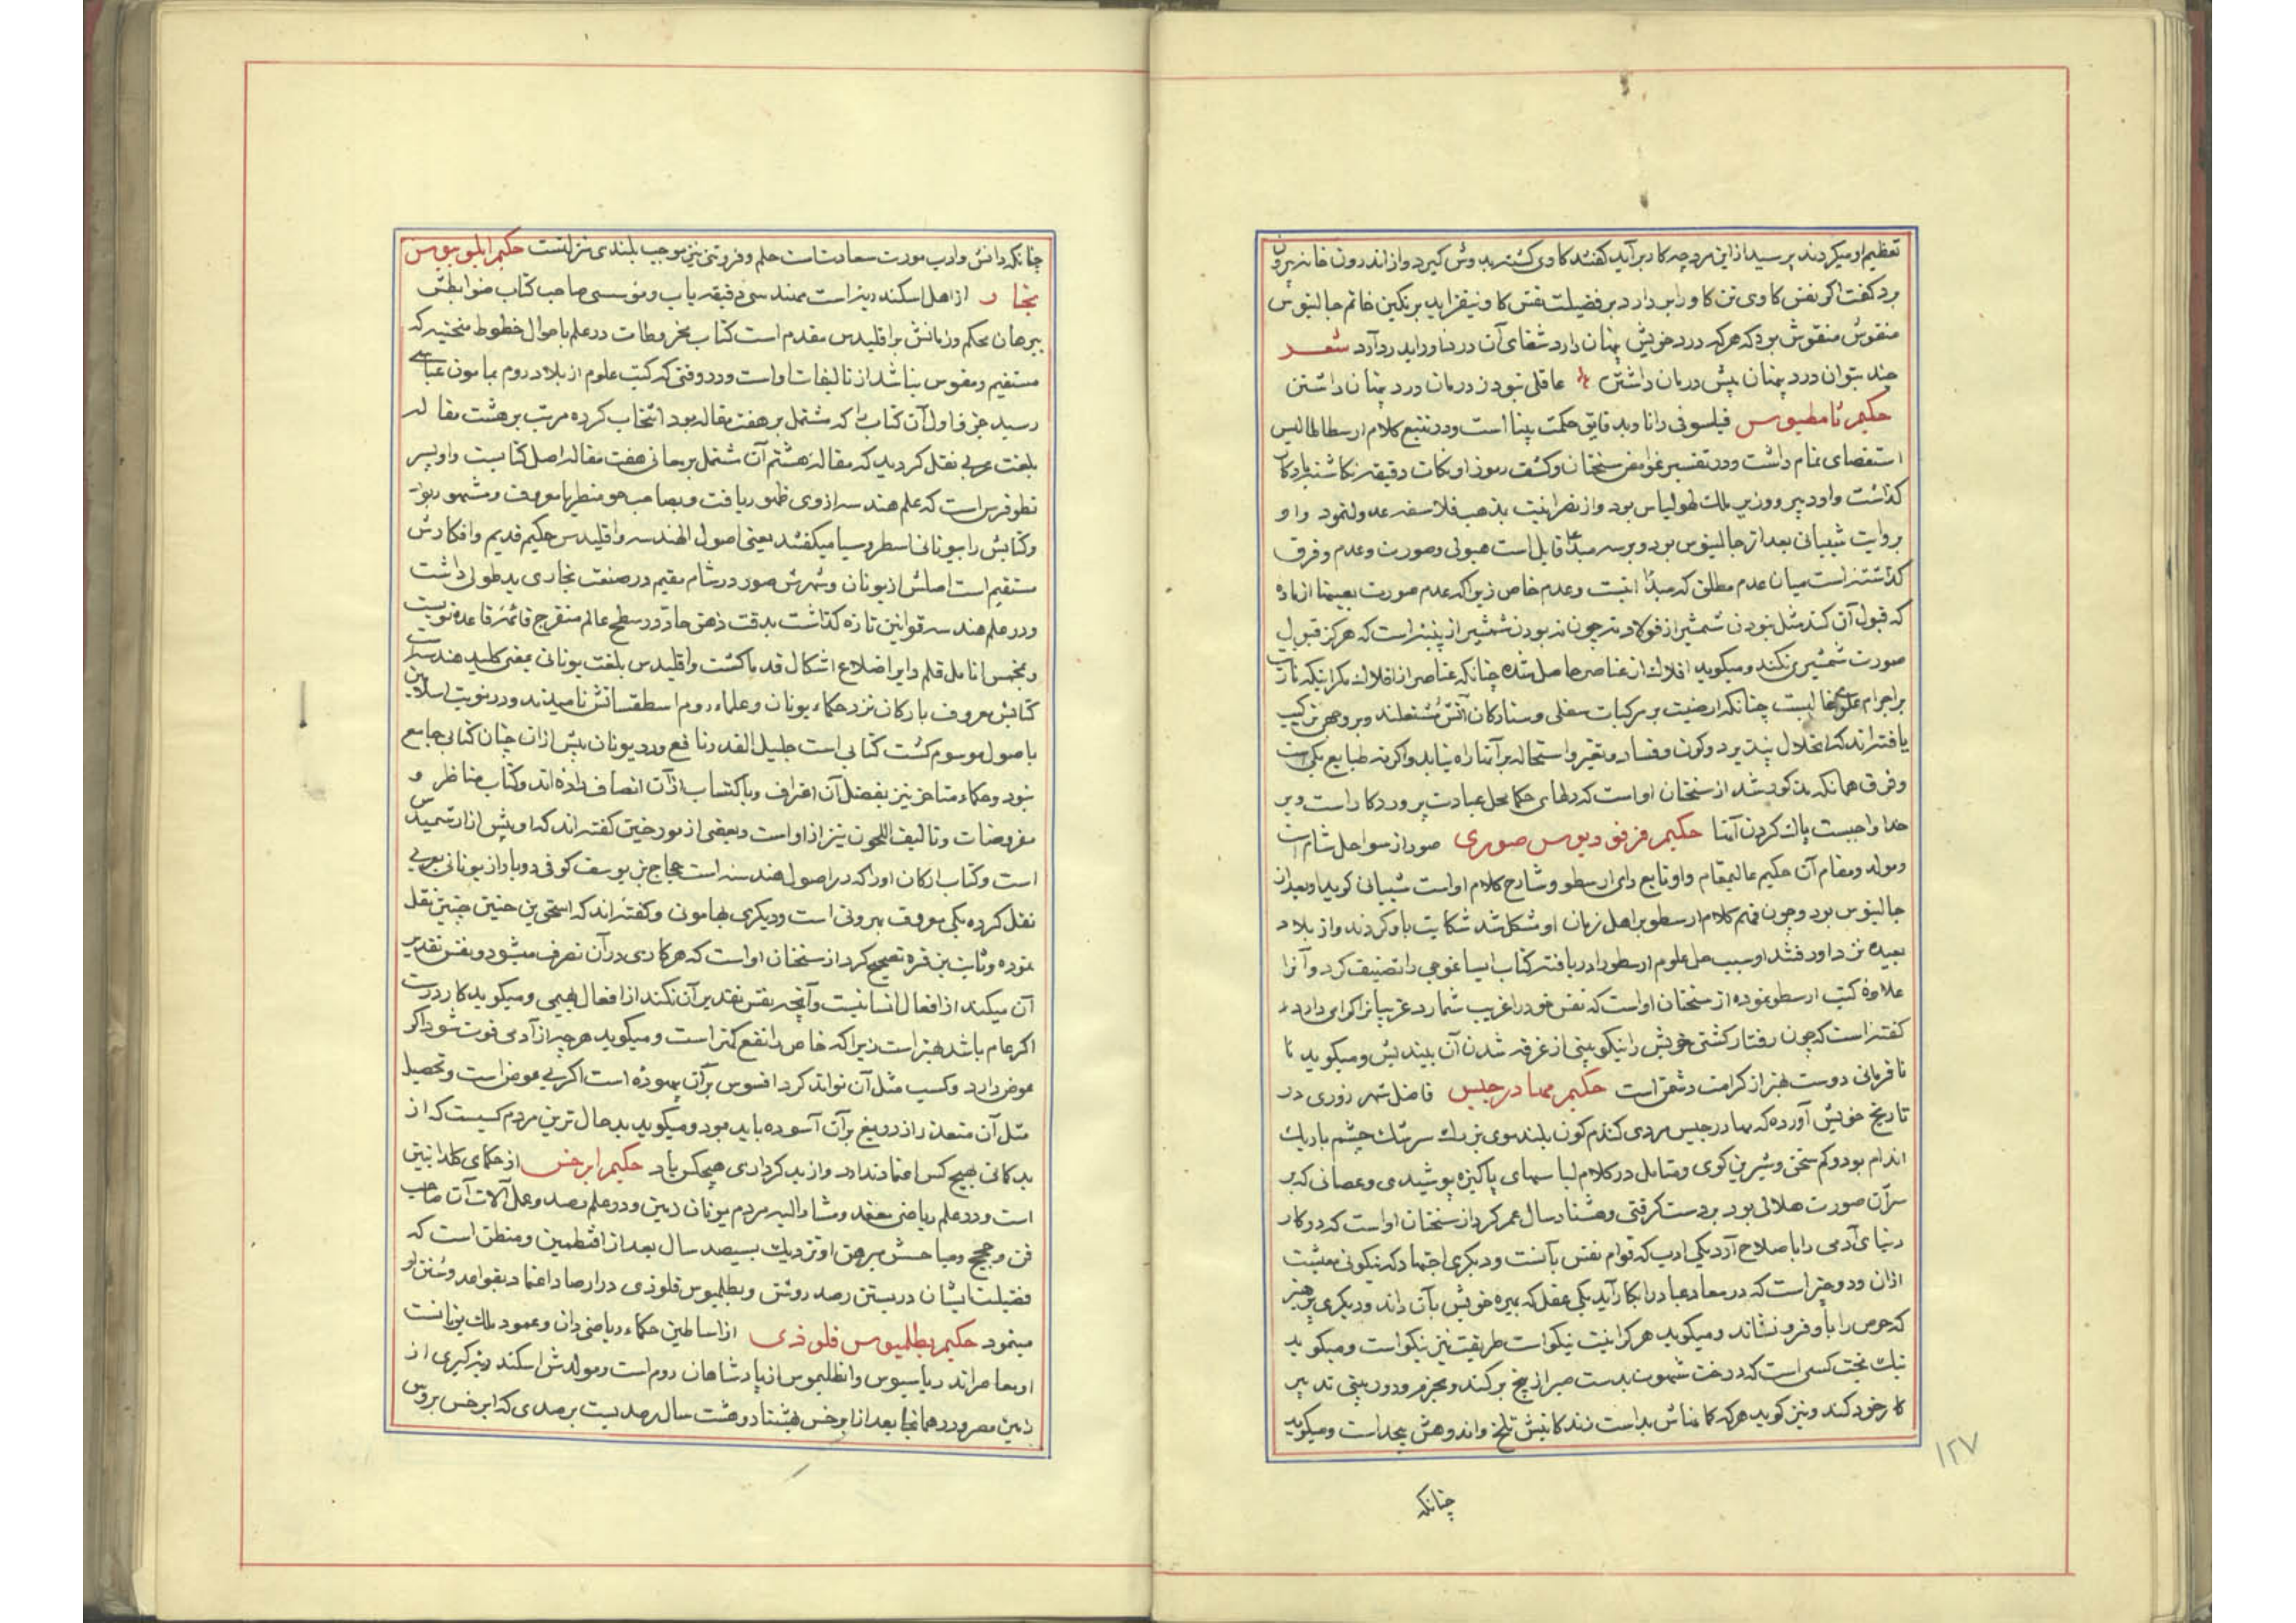 تعظیم او میکردند پرسید از این مرد چه کار برآید گفتند کاوی کشته بدوش گیرد و از اندرون خانه بیرون
برد گفت اگر نفس کاوی تن کاو را بر دارد بر فضیلت نفس کاو نیفزاید بر نکین خاتم جالینوس
منقوش بود که هر که درد خویش پنهان دارد شفای آن دردناور آید شعر
چند بتوان درد پنهان پیش درمان داشتن عاقلی نبود ز درمان درد پنهان داشتن
حکیم ثامطیوس فیلسوفی دانا و بدقایق حکمت بینا است و در تتبع کلام ارسطاطالیس
استقصای تمام داشت و در تفسیر غوامض سخنان و کشف رموز او نکات دقیقه نکاشته یادکار
کذاشت و او دبیر و وزیر ملک لهولیاس بود و از نصرانیت بمذهب فلاسفه عدول نمود و او
بروایت شیبانی بعد از جالینوس بود و بر سه مبدأ قایل است هیولی و صورت و عدم و فرق
کذاشته است میان عدم مطلق که مبدأ نیست و عدم خاص زیرا که عدم صورت بعینها از ماده
که قبول آن کند مثل نبودن شمشیر از فولاد نه چون نه بودن شمشیر از پنبه است که هرکز قبول
صورت شمشیری نکند و میکوید افلاک از عناصر حاصل شده چنانکه عناصر از افلاک مکر اینکه نار
بر اجرام علوی غالبست چنانکه ارضیت بر مرکبات سفلی و ستارکان آتش مشتعلند و بر وجهی ترکیب
یافته اند که انحلال نپذیرد و کون و فساد و تغیر و استحاله بر آنها راه نیابد واکرنه طبایع یکی است
و فرق همانکه مذکور شد از سخنان او است که دلهای حکما محل عبادت پروردکار است و بر
خدا واجبست پاک کردن آنها حکیم فرفوریوس صوری صور از سواحل شام است
و مولد و مقام آن حکیم عالیمقام و او تابع رای ارسطو و شارح کلام او است شیبانی کوید او بعد از
جالینوس بود و چون فهم کلام ارسطو بر اهل زمان او مشکل شد شکایت باو کردند و از بلاد
بعیده نزد او رفتند او سبب خلل علوم ارسطو را دریافته کتاب ایساغوجی را تصنیف کرد و آنرا
علاوه کتب ارسطو نموده از سخنان او است که نفس خود را غریب شمارد غریبانرا کرامی دارد
کفته است که چون رفتار کشتی خویش را نیکو بینی از غرقه شدن آن بیندیش و میکوید
نافرمانی دوست بهتر از کرامت دشمن است حکیم مهادرجیس فاضل شهرزوری در
تاریخ خویش آورده که مهادرجیس مردی کندم کون بلند موی بزرک سر تنک چشم باریک
اندام بود و کم سخن و شیرین کوی و متأمل در کلام لباسهای پاکیزه پوشیدی و عصائی که بر
سر آن صورت هلالی بود بردست کرفتی و هشتاد سال عمر کرد از سخنان او است که دو کار
دنیای آدمی را با صلاح آرد یکی ادب که قوام نفس بآنست و دیگری اجتهاد که نیکوئی معیشت
از آن و دو چیز است که در معاد عباد را بکار آید یکی عقل که بهره خویش بآن داند و دیکری پرهیز
که حرص را باو فرو نشاند و میکوید هر کرا نیت نیکو است طریقت نیز نیکو است و میکوید
نیک بخت کسی است که درخت شهوت بدست صبر از بیخ برکند و بحزم و دوربینی تدبیر
کار خود کند و نیز کوید هر که کمانش بد است زندکانیش تلخ و اندوهش بیحد است و میکوید
چنانکه
۱۲۷
چنانکه دانش و ادب مورث سعادت است حلم و فروتنی نیز موجب بلندی منزلتست حکیم ابلونیوس
نجار از اهل اسکندریه است مهندسی دقیقه یاب و مؤسسی صاحب کتاب ضوابطش
ببرهان محکم و زمانش بر اقلیدس مقدم است کتاب مخروطات در علم باحوال خطوط منحنیه که
مستقیم و مقوس نباشد از تألیفات او است و در وقتی که کتب علوم از بلاد روم بمأمون عباسی
رسید جزو اول آن کتاب را که مشتمل بر هفت مقاله بود انتخاب کرده مرتب بر هشت مقاله
بلغت عربی نقل کردید که مقاله هشتم آن مشتمل بر معانی هفت مقاله اصل کتابست و او پسر
نطوفرس است که علم هندسه از وی ظهور یافت و بصاحب جومطریا معروف و مشهور بود
و کتابش را بیونانی اسطروسیا میکفتند یعنی اصول الهندسه و اقلیدس حکیم قدیم و افکارش
مستقیم است اصلش از یونان و شهرش صور در شام مقیم در صنعت نجاری ید طولی داشت
و در علم هندسه قوانین تازه کذاشت بدقت ذهن حاد در سطح عالم منفرج قائمه قاعده تربیت
و بخمس انامل قلم دایر اضلاع اشکال قدما کشت و اقلیدس بلغت یونانی بمعنی کلید هندسه است
کتابش معروف بارکان نزد حکماء یونان و علماء روم اسطقساتش نامیدند و در نوبت اسلامیین
باصول موسوم کشت کتابی است جلیل القدر نافع و در یونان پیش از آن چنان کتابی جامع
نبود و حکماء متأخر نیز بفضل آن اعتراف و باکتساب از آن انصاف داده اند و کتاب مناظر و
مفروضات و تألیف اللحون نیز از او است و بعضی از مورخین کفته اند که او پیش از ارشمیدس
است و کتاب ارکان او را که در اصول هندسه است حجاج بن یوسف کوفی دوبار از یونانی بعربی
نقل کرده یکی معروف بهرونی است و دیکری بمأمونی و کفته اند که اسحق بن حنین چنین نقل
نموده و ثابت بن قره تصحیح کرد از سخنان او است که هر کاری در آن تصرف میشود و نفس تقدیر
آن میکند از افعال انسانیت و آنچه نفس تقدیر آن نکند از افعال بهیمی و میکوید کار درست
اکر عام باشد بهتر است زیرا که خاص را نفع کمتر است و میکوید هر چه از آدمی فوت شود اکر
عوض دارد و کسب مثل آن تواند کرد افسوس بر آن بیهوده است اکر بی عوض است و تحصیل
مثل آن متعذر از دریغ بر آن آسوده باید بود و میکوید بدحال ترین مردم کسیست که از
بدکمانی بهیچ کس اعتماد ندارد و از بدکرداری هیچکس باو حکیم ابرخس از حکمای کلدانیین
است و در علم ریاضی معتمد و مشار الیه مردم یونان زمین و در علم رصد و عمل آلات آن صاحب
فن و حجج و مباحثش مبرهن او نزدیک بسیصد سال بعد از اقطیمن و منطن است که
فضیلت ایشان در بستن رصد روشن و بطلمیوس قلوذی در ارصاد اعتماد بقواعد و سنن او
مینمود حکیم بطلمیوس قلوذی از اساطین حکماء ریاضی دان و عمود ملک یزدانست
او معاصر اندریاسیوس و انطلیموس از پادشاهان روم است و مولدش اسکندریه کبری از
زمین مصر و در همانجا بعد از ابرخس بهشتاد و هشت سال رصد بست بر صدی که ابرخس بروس